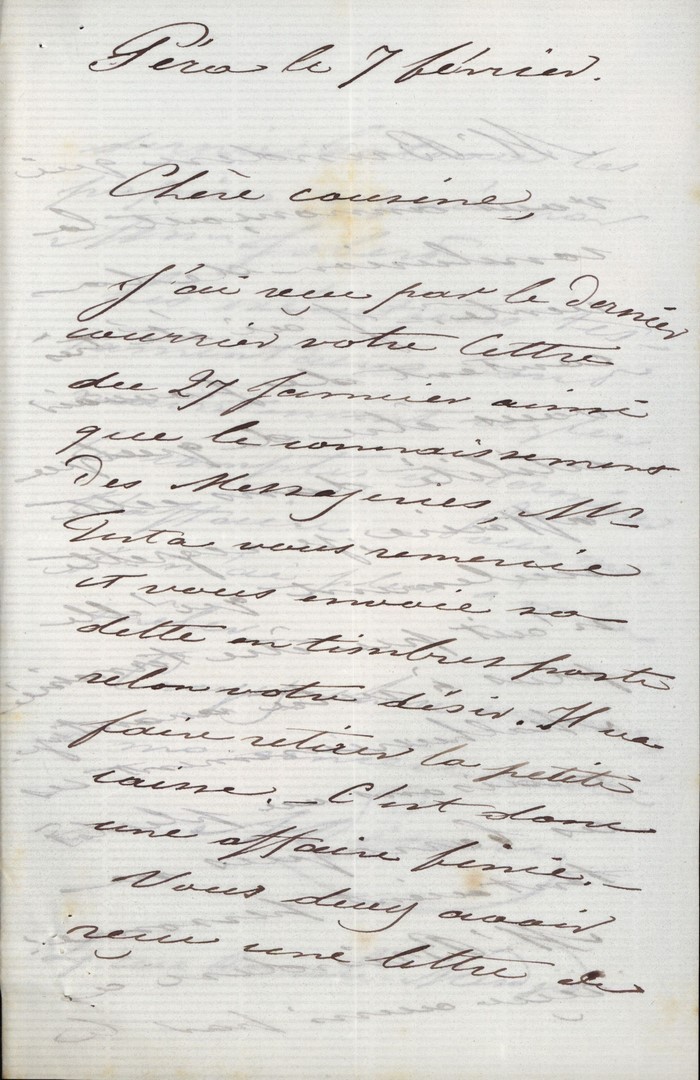 Péra le 7 février.
Chère cousine,
J'ai reçu par le dernier
courrier votre lettre
du 27 Janvier ainsi
que le connaissement
des Messageries, Mr
vous remercie
et vous envoie sa
dette en timbres poste
selon votre désir. Il va
faire retirer la petite
caisse. — C'est donc
une affaire finie. —
Vous devez avoir
reçu une lettre de